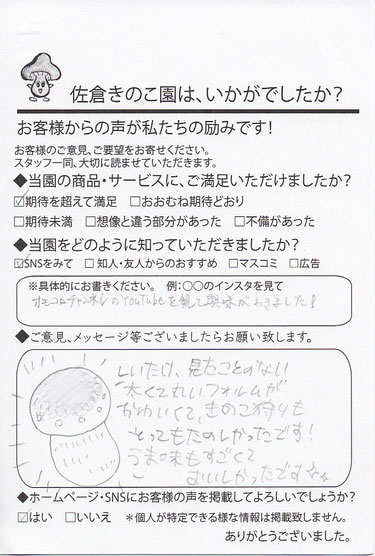 佐倉きのこ園は、いかがでしたか？
お客様からの声が私たちの励みです！
お客様のご意見、ご要望をお寄せください。
スタッフ一同、大切に読ませていただきます。
◆当園の商品・サービスに、ご満足いただけましたか？
☑期待を超えて満足 □おおむね期待どおり
□期待未満 □想像と違う部分があった □不備があった
◆当園をどのように知っていただきましたか？
☑SNSをみて □知人・友人からのおすすめ □マスコミ □広告
※具体的にお書きください。 例：〇〇のインスタを見て
オモコロチャンネルのYouTubeを観て興味がわきました！
◆ご意見、メッセージ等ございましたらお願い致します。
しいたけ、見たことのない
太くて丸いフォルムが
かわいくて、きのこ狩りも
とってもたのしかったです！
うま味もすごくて
おいしかったです☆☆
◆ホームページ・SNSにお客様の声を掲載してよろしいでしょうか？
☑はい □いいえ ＊個人が特定できる様な情報は掲載致しません。
ありがとうございました。